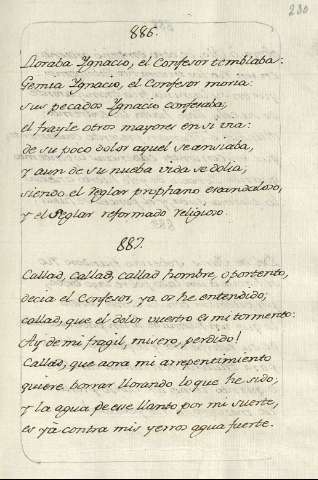 230
886.
Lloraba Ygnacio, el Confesor temblaba:
Gemia Ygnacio, el Confesor moria:
sus pecados Ygnacio confesaba,
el frayle otros mayores en si via:
de su poco dolor aquel se ansiaba,
y aun de su nueba vida se dolia,
siendo el seglar prophano escandaloso,
y el Seglar reformado religioso.
887.
Callad, Callad, callad hombre, o portento,
decia el Confesor, ya os he entendido;
callad, que el dolor vuestro es mi tormento:
Ay de mi fragil, misero, perdido!
Callad, que aora mi arrepentimiento
quiere borrar llorando lo que he sido,
y la agua de ese llanto por mi suerte,
es ya contra mis yerros agua fuerte.